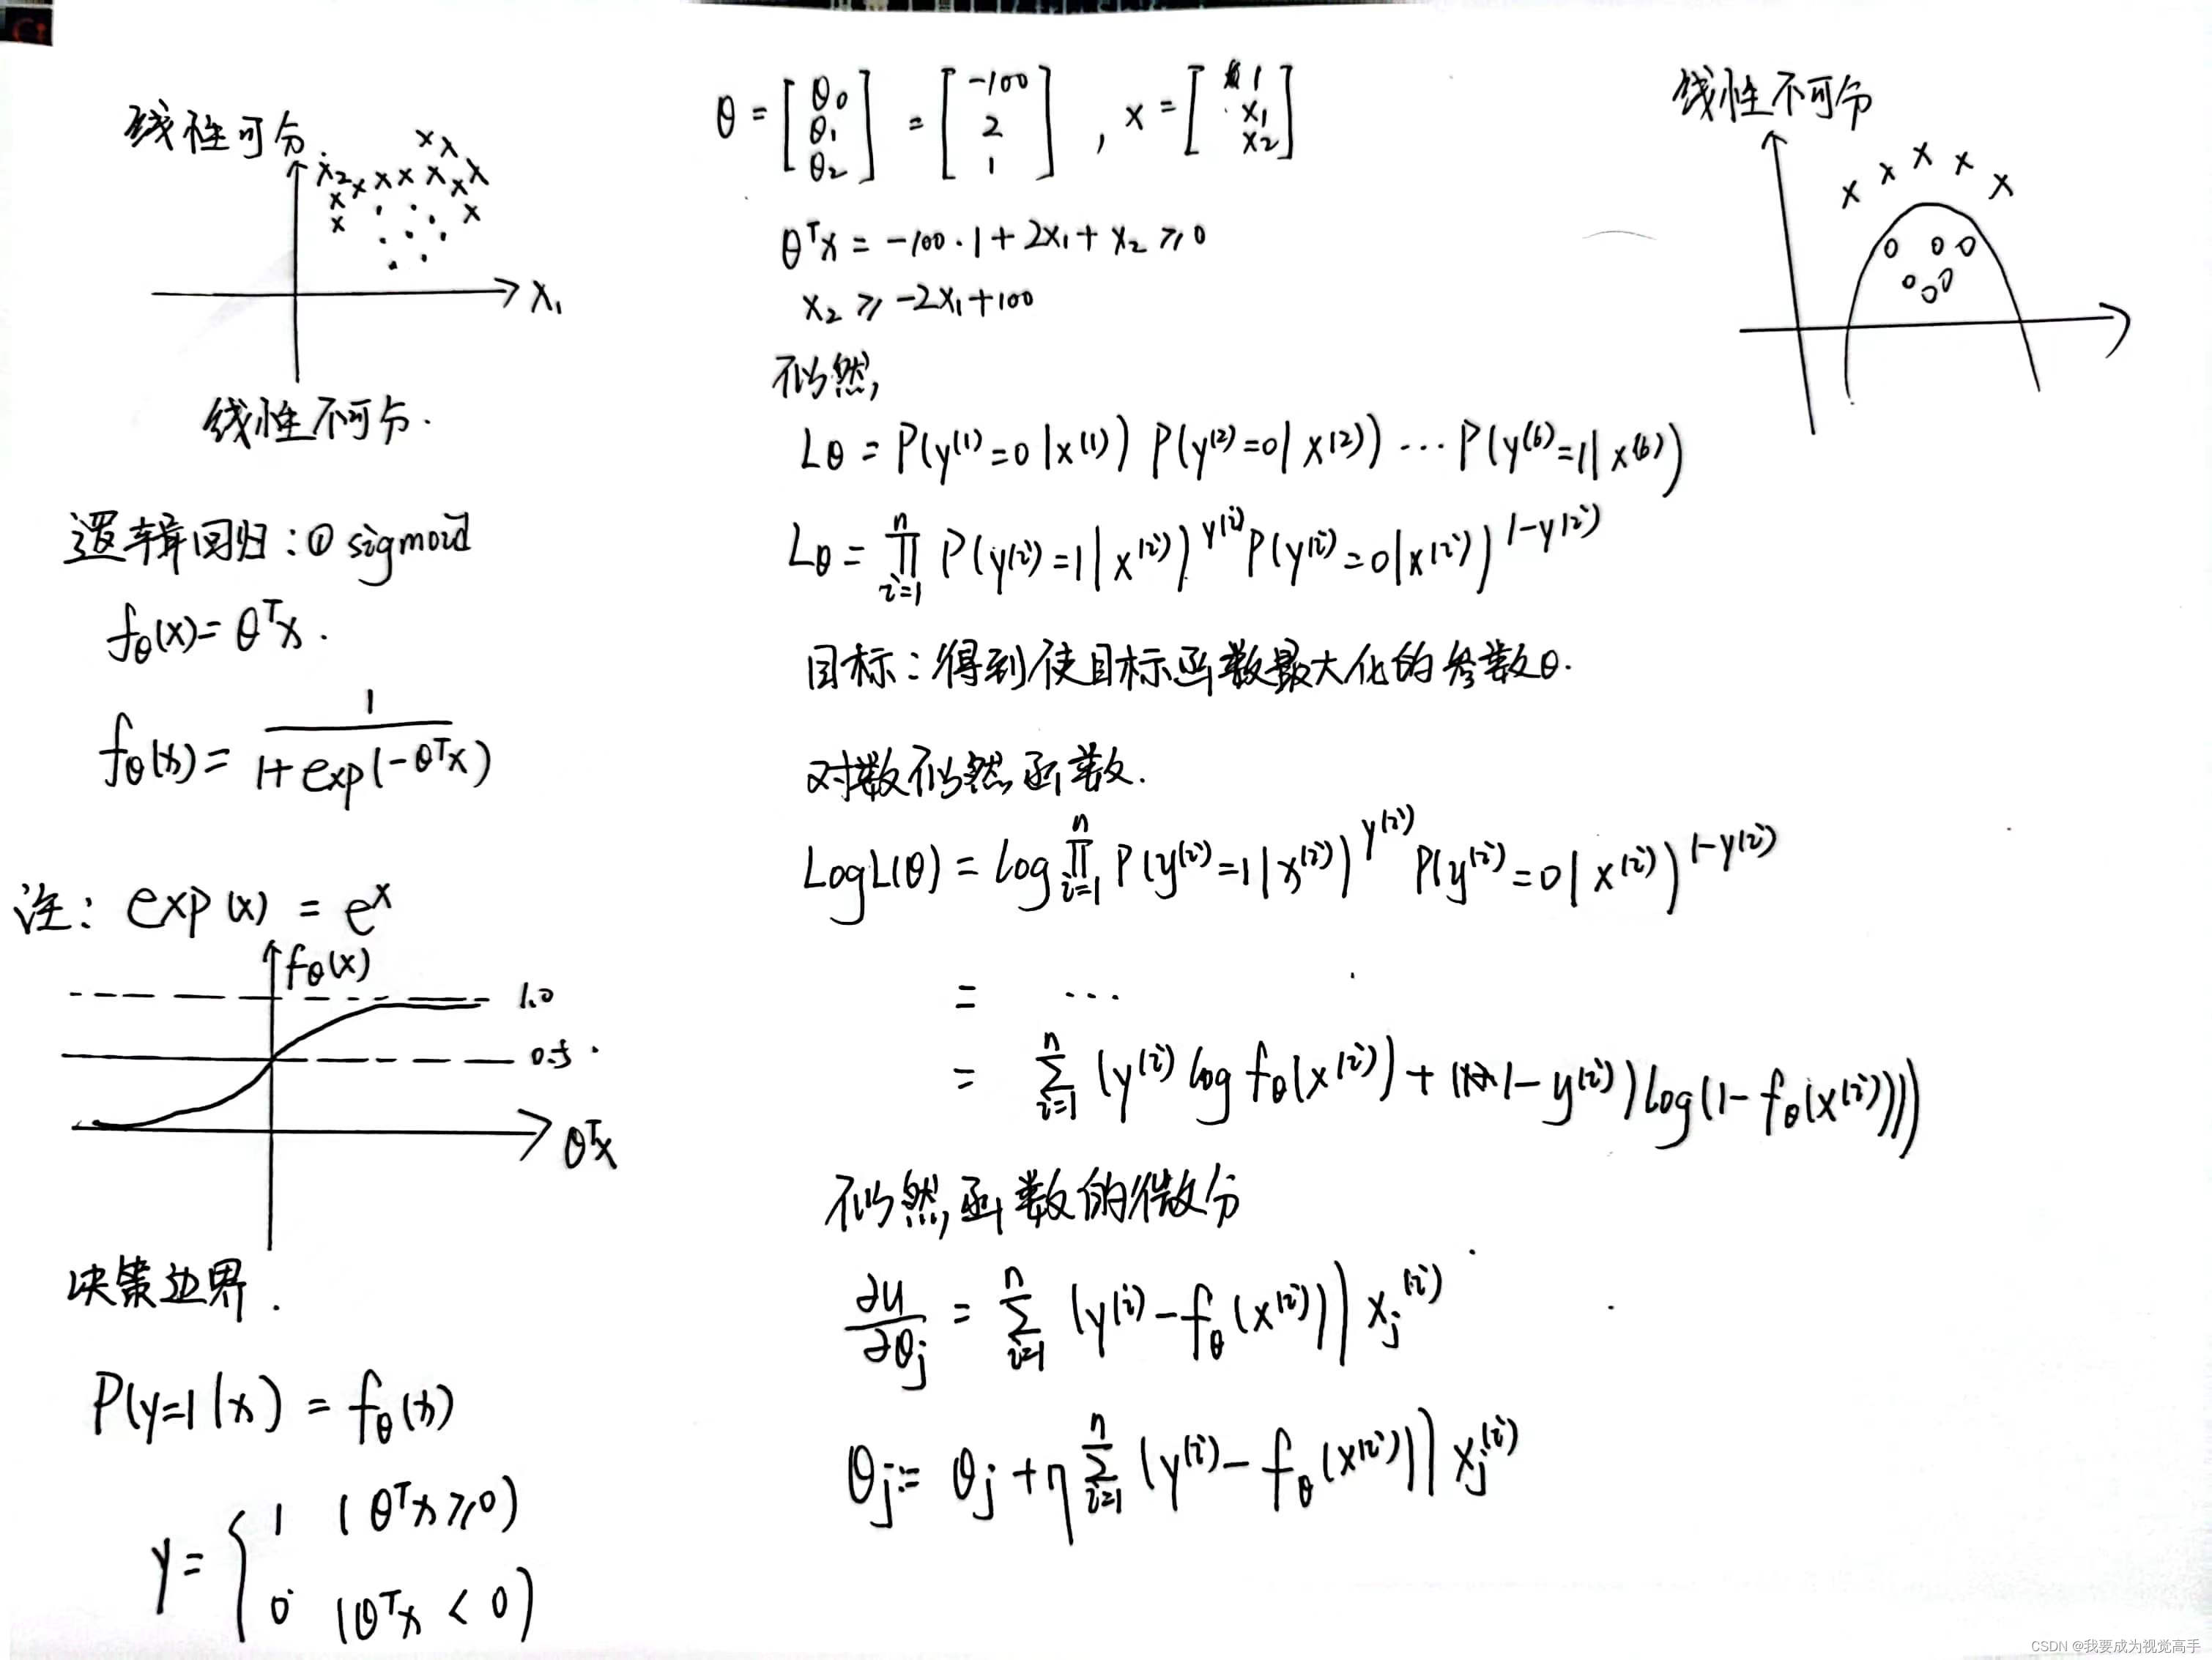 线性可分.
x₂
x₁
线性不可分.
逻辑回归:① sigmoid
f_θ(x)= θᵀx.
f_θ(x)= 1 / (1+exp(-θᵀx))
注: exp(x) = eˣ
f_θ(x)
1.0
0.5
θᵀx
决策边界.
P(y=1|x) = f_θ(x)
y= { 1 (θᵀx⩾0)
0 (θᵀx < 0)
θ = [θ₀ θ₁ θ₂] = [-100 2 1], x = [1 x₁ x₂]
θᵀx = -100·1+2x₁+x₂ ⩾ 0
x₂ ⩾ -2x₁+100
似然
Lθ = P(y⁽¹⁾=0|x⁽¹⁾) P(y⁽²⁾=0|x⁽²⁾) ··· P(y⁽⁶⁾=1|x⁽⁶⁾)
Lθ = ∏_{i=1}^{n} P(y⁽ⁱ⁾=1|x⁽ⁱ⁾)^{y⁽ⁱ⁾} P(y⁽ⁱ⁾=0|x⁽ⁱ⁾)^{1-y⁽ⁱ⁾}
目标:得到使目标函数最大化的参数θ.
对数似然函数.
LogL(θ) = log ∏_{i=1}^{n} P(y⁽ⁱ⁾=1|x⁽ⁱ⁾)^{y⁽ⁱ⁾} P(y⁽ⁱ⁾=0|x⁽ⁱ⁾)^{1-y⁽ⁱ⁾}
= ...
= ∑_{i=1}^{n} (y⁽ⁱ⁾ log f_θ(x⁽ⁱ⁾) + (1-y⁽ⁱ⁾)log(1-f_θ(x⁽ⁱ⁾)))
似然函数的微分
∂u/∂θⱼ = ∑_{i=1}^{n} (y⁽ⁱ⁾-f_θ(x⁽ⁱ⁾)) xⱼ⁽ⁱ⁾
θⱼ:= θⱼ+η ∑_{i=1}^{n} (y⁽ⁱ⁾-f_θ(x⁽ⁱ⁾)) xⱼ⁽ⁱ⁾
线性不可分
CSDN @我要成为视觉高手